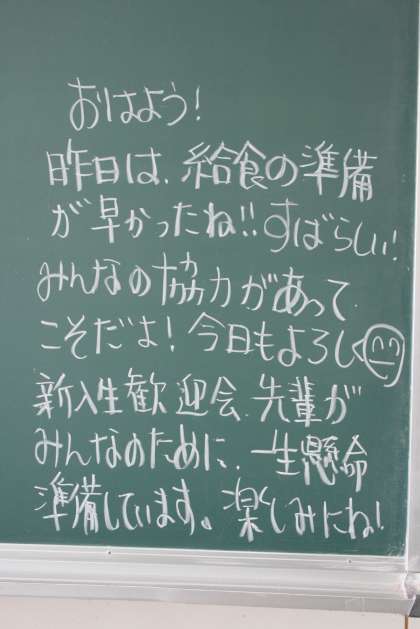 おはよう!
昨日は、給食の準備
が早かったね!!すばらしい!
みんなの協力があって
こそだよ!今日もよろしく
新入生歓迎会、先輩が
みんなのために、一生懸命
準備しています。楽しみにね!